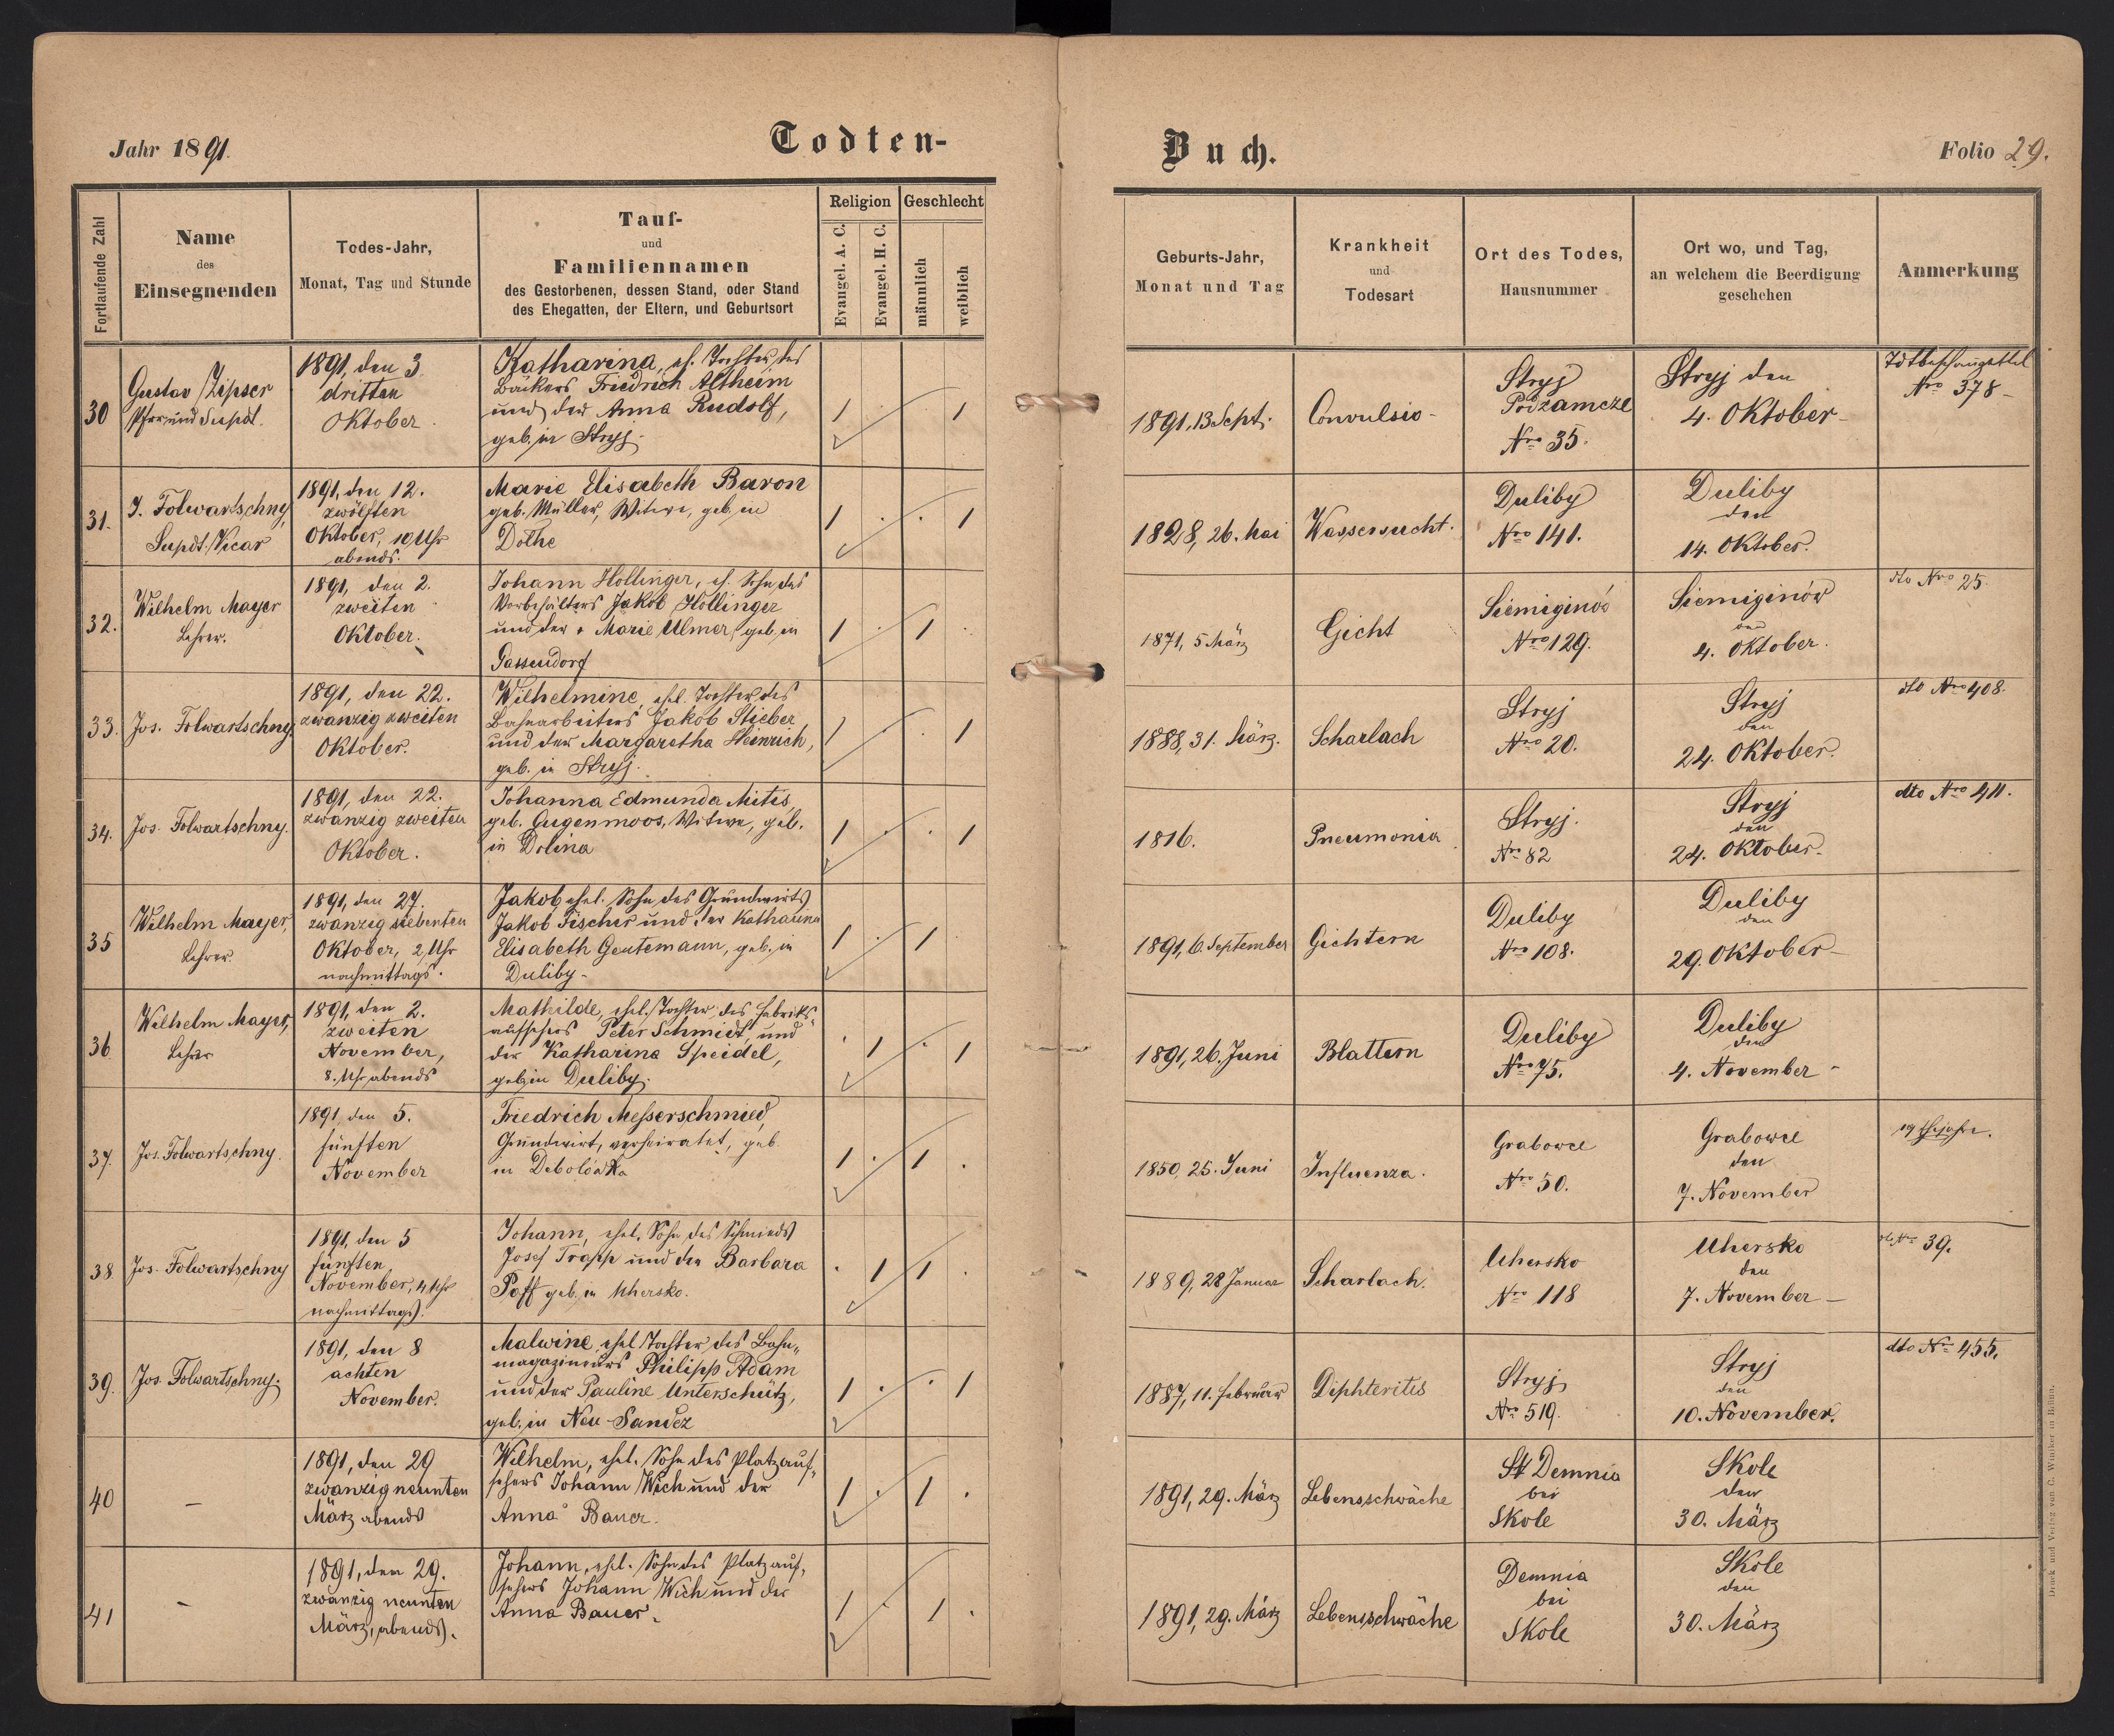 Jahr 1891.
Todten-
Buch.
Folio 29.
Fortlaufende Zahl
Name
des
Einsegnenden
Todes-Jahr,
Monat, Tag und Stunde
Tauf-
und
Familiennamen
des Gestorbenen, dessen Stand, oder Stand
des Ehegatten, der Eltern, und Geburtsort
Religion
Evangel. A. C.
Evangel. H. C.
Geschlecht
männlich
weiblich
Geburts-Jahr,
Monat und Tag
Krankheit
und
Todesart
Ort des Todes,
Hausnummer
Ort wo, und Tag,
an welchem die Beerdigung
geschehen
Anmerkung
30
Gustav Zipser
Pfar und Supdt.
1891, den 3.
dritten
Oktober.
Katharina, eh. Tochter des
Bäckers Friedrich Altheim
und der Anna Rudolf,
geb. in Stryj.
1 . 1
1891, 13 Sept.
Convulsio -
Stryj
Podzamcze
Nro 35.
Stryj den
4. Oktober -
Todtbeschauzettel
Nro 378 -
31.
J. Folwartschny,
Supdt. Vicar
1891, den 12.
zwölften
Oktober, 10 Uhr
abends.
Marie Elisabeth Baron
geb. Müller, Witwe, geb. in
Dolhe
1 . . 1
1828, 26. Mai
Wassersucht.
Duliby
Nro 141.
Duliby
den
14. Oktober.
32.
Wilhelm Mayer
Lehrer.
1891, den 2.
zweiten
Oktober.
Johann Hollinger, eh. Sohn des
Vorbehälters Jakob Hollinger
und der + Marie Ulmer, geb. in
Gassendorf
1 . 1 .
1871, 5 März
Gicht
Siemiginów
Nro 129.
Siemiginów
den
4. Oktober.
dto Nro 25.
33.
Jos. Folwartschny
1891, den 22.
zwanzig zweiten
Oktober.
Wilhelmine, ehel. Tochter des
Bahnarbeiters Jakob Stieber
und der Margaretha Heinrich,
geb. in Stryj.
1 . . 1
1888, 31. März.
Scharlach
Stryj
Nro 20.
Stryj
den
24. Oktober.
dto Nro 408.
34.
Jos. Folwartschny.
1891, den 22.
zwanzig zweiten
Oktober.
Johanna Edmunda Mitis,
geb. Gugenmoos, Witwe, geb.
in Dolina
1 . . 1
1816.
Pneumonia
Stryj.
Nro 82
Stryj
den
24. Oktober.
dto Nro 411.
35
Wilhelm Mayer,
Lehrer.
1891, den 27.
zwanzig siebenten
Oktober, 2 Uhr
nachmittags.
Jakob, ehel. Sohn des Grundwirts
Jakob Fischer und der Katharina
Elisabeth Gentemann, geb. in
Duliby -
1 . 1 .
1891, 6. September
Gichtern
Duliby
Nro 108.
Duliby
den
29. Oktober -
36
Wilhelm Mayer,
Lehrer
1891, den 2.
zweiten
November,
8. Uhr abends
Mathilde, ehel. Tochter des Fabriks-
aufsehers Peter Schmidt und
der Katharina Speidel,
geb. in Duliby.
. 1 . 1
1891, 26. Juni
Blattern
Duliby
Nro 75.
Duliby
den
4. November -
37.
Jos. Folwartschny.
1891, den 5.
fünften
November
Friedrich Messerschmied,
Grundwirt, verheiratet, geb.
in Debolówka
1 . 1 .
1850, 25. Juni
Influenza.
Grabowce
Nro 50.
Grabowce
den
7. November
19 Ehejahre.
38
Jos. Folwartschny
1891, den 5
fünften
November, 4 Uhr
nachmittags.
Johann, ehel. Sohn des Schmieds
Josef Trapp und der Barbara
Poff geb. in Uhersko.
. 1 1 .
1889, 28 Januar
Scharlach.
Uhersko
Nro 118
Uhersko
den
7. November -
dto Nro 39.
39.
Jos. Folwartschny.
1891, den 8
achten
November.
Malwine, ehel. Tochter des Bahn-
magazineurs Philipp Adam
und der Pauline Unterschütz,
geb. in Neu-Sandez
1 . . 1
1887, 11. Februar
Diphteritis
Stryj
Nro 519.
Stryj
den
10. November.
dto Nro 455.
40
-
1891, den 29
zwanzig neunten
März abends
Wilhelm, ehel. Sohn des Platzauf-
sehers Johann Wich und der
Anna Bauer.
1 . 1 .
1891, 29. März
Lebensschwäche
Demnia
bei
Skole
Skole
den
30. März
41
-
1891, den 29.
zwanzig neunten
März, abends.
Johann, ehel. Sohn des Platzauf-
sehers Johann Wich und der
Anna Bauer.
1 . 1 .
1891, 29. März
Lebensschwäche
Demnia
bei
Skole
Skole
den
30. März
Druck und Verlag von C. Winiker in Brünn.